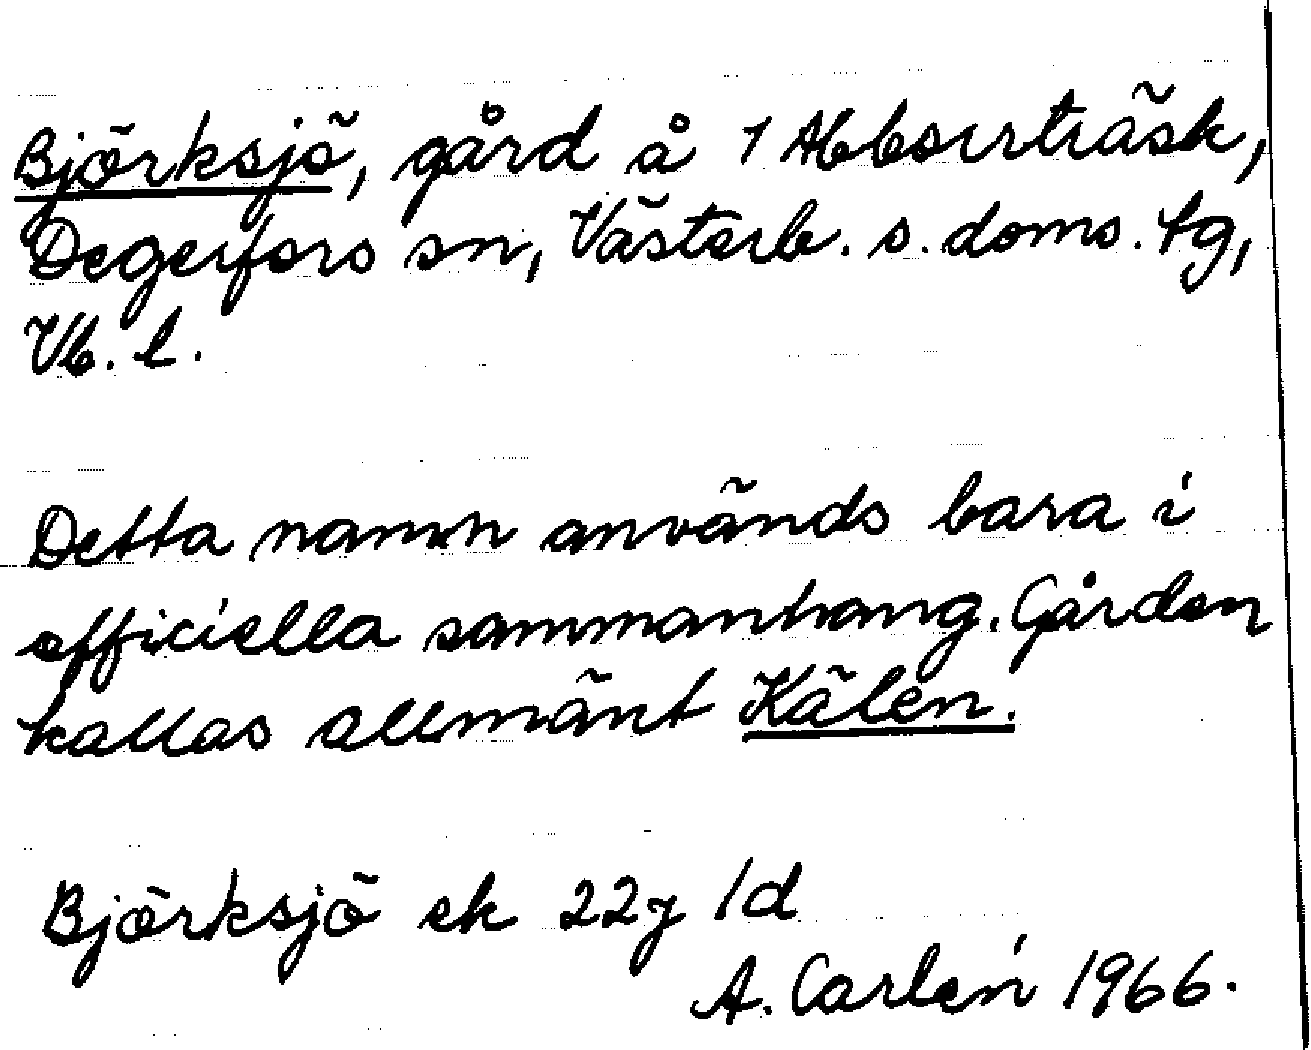 Björksjö, gård å 1 Abborrträsk,
Degerfors sn, Västerb. s. doms. tg,
Vb. l.
Detta namn används bara i
officiella sammanhang. Gården
kallas allmänt Kälen.
Björksjö ek 22j 1d
A. Carlén 1966.